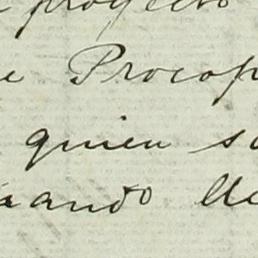 proyecto
e Procop
quien s
uando de